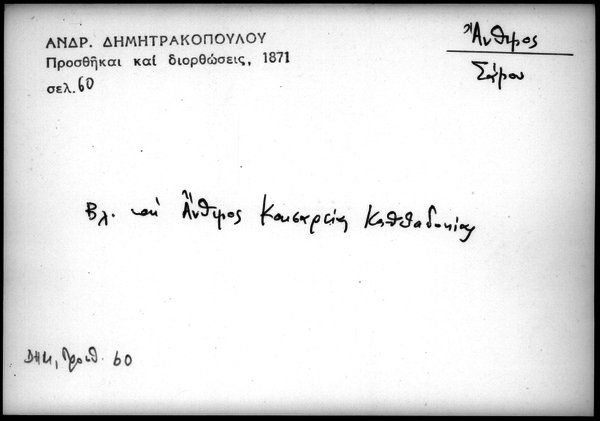 ΑΝΔΡ. ΔΗΜΗΤΡΑΚΟΠΟΥΛΟΥ
Προσθῆκαι καί διορθώσεις, 1871
σελ. 60
Ἄνθιμος
Σάμου
Βλ. καί Ἄνθιμος Καισαρείας Καππαδοκίας
ΔΗΜ, Προσθ. 60